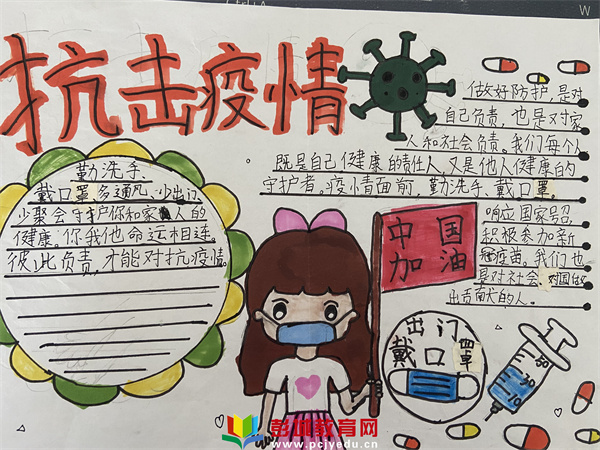 抗击疫情
做好防护,是对
自己负责,也是对家
人和社会负责。我们每个人
既是自己健康的责任人,又是他人健康的
守护者。疫情面前,勤洗手、戴口罩。
响应国家号召
积极参加新
冠疫苗。我们也
是对社会、对国做
出贡献的人。
勤洗手、
戴口罩,多通风,少出门
少聚会守护你和家人的
健康。你我他命运相连。
彼此负责,才能对抗疫情。
中国
加油
出门
戴口罩
彭州教育网
www.pcjyedu.cn